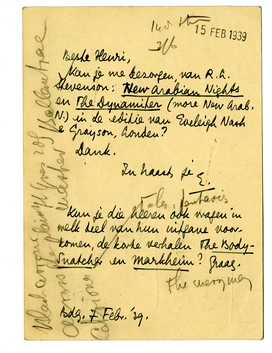 15 FEB 1939
Beste Henri,
Kan je me bezorgen, van R.L.
Stevenson: New Arabian Nights
en The Dynamiter (more New Arab.
N.) in de editie van Eveleigh Nash
& Grayson, Londen?
Dank.
In haast je
E.
Kun je die heeren ook vragen in
welk deel van hun uitgave voor-
komen, de korte verhalen The Body-
Snatcher en Markheim? Graag.
The merry men
Bdg. 7 Febr. '39.